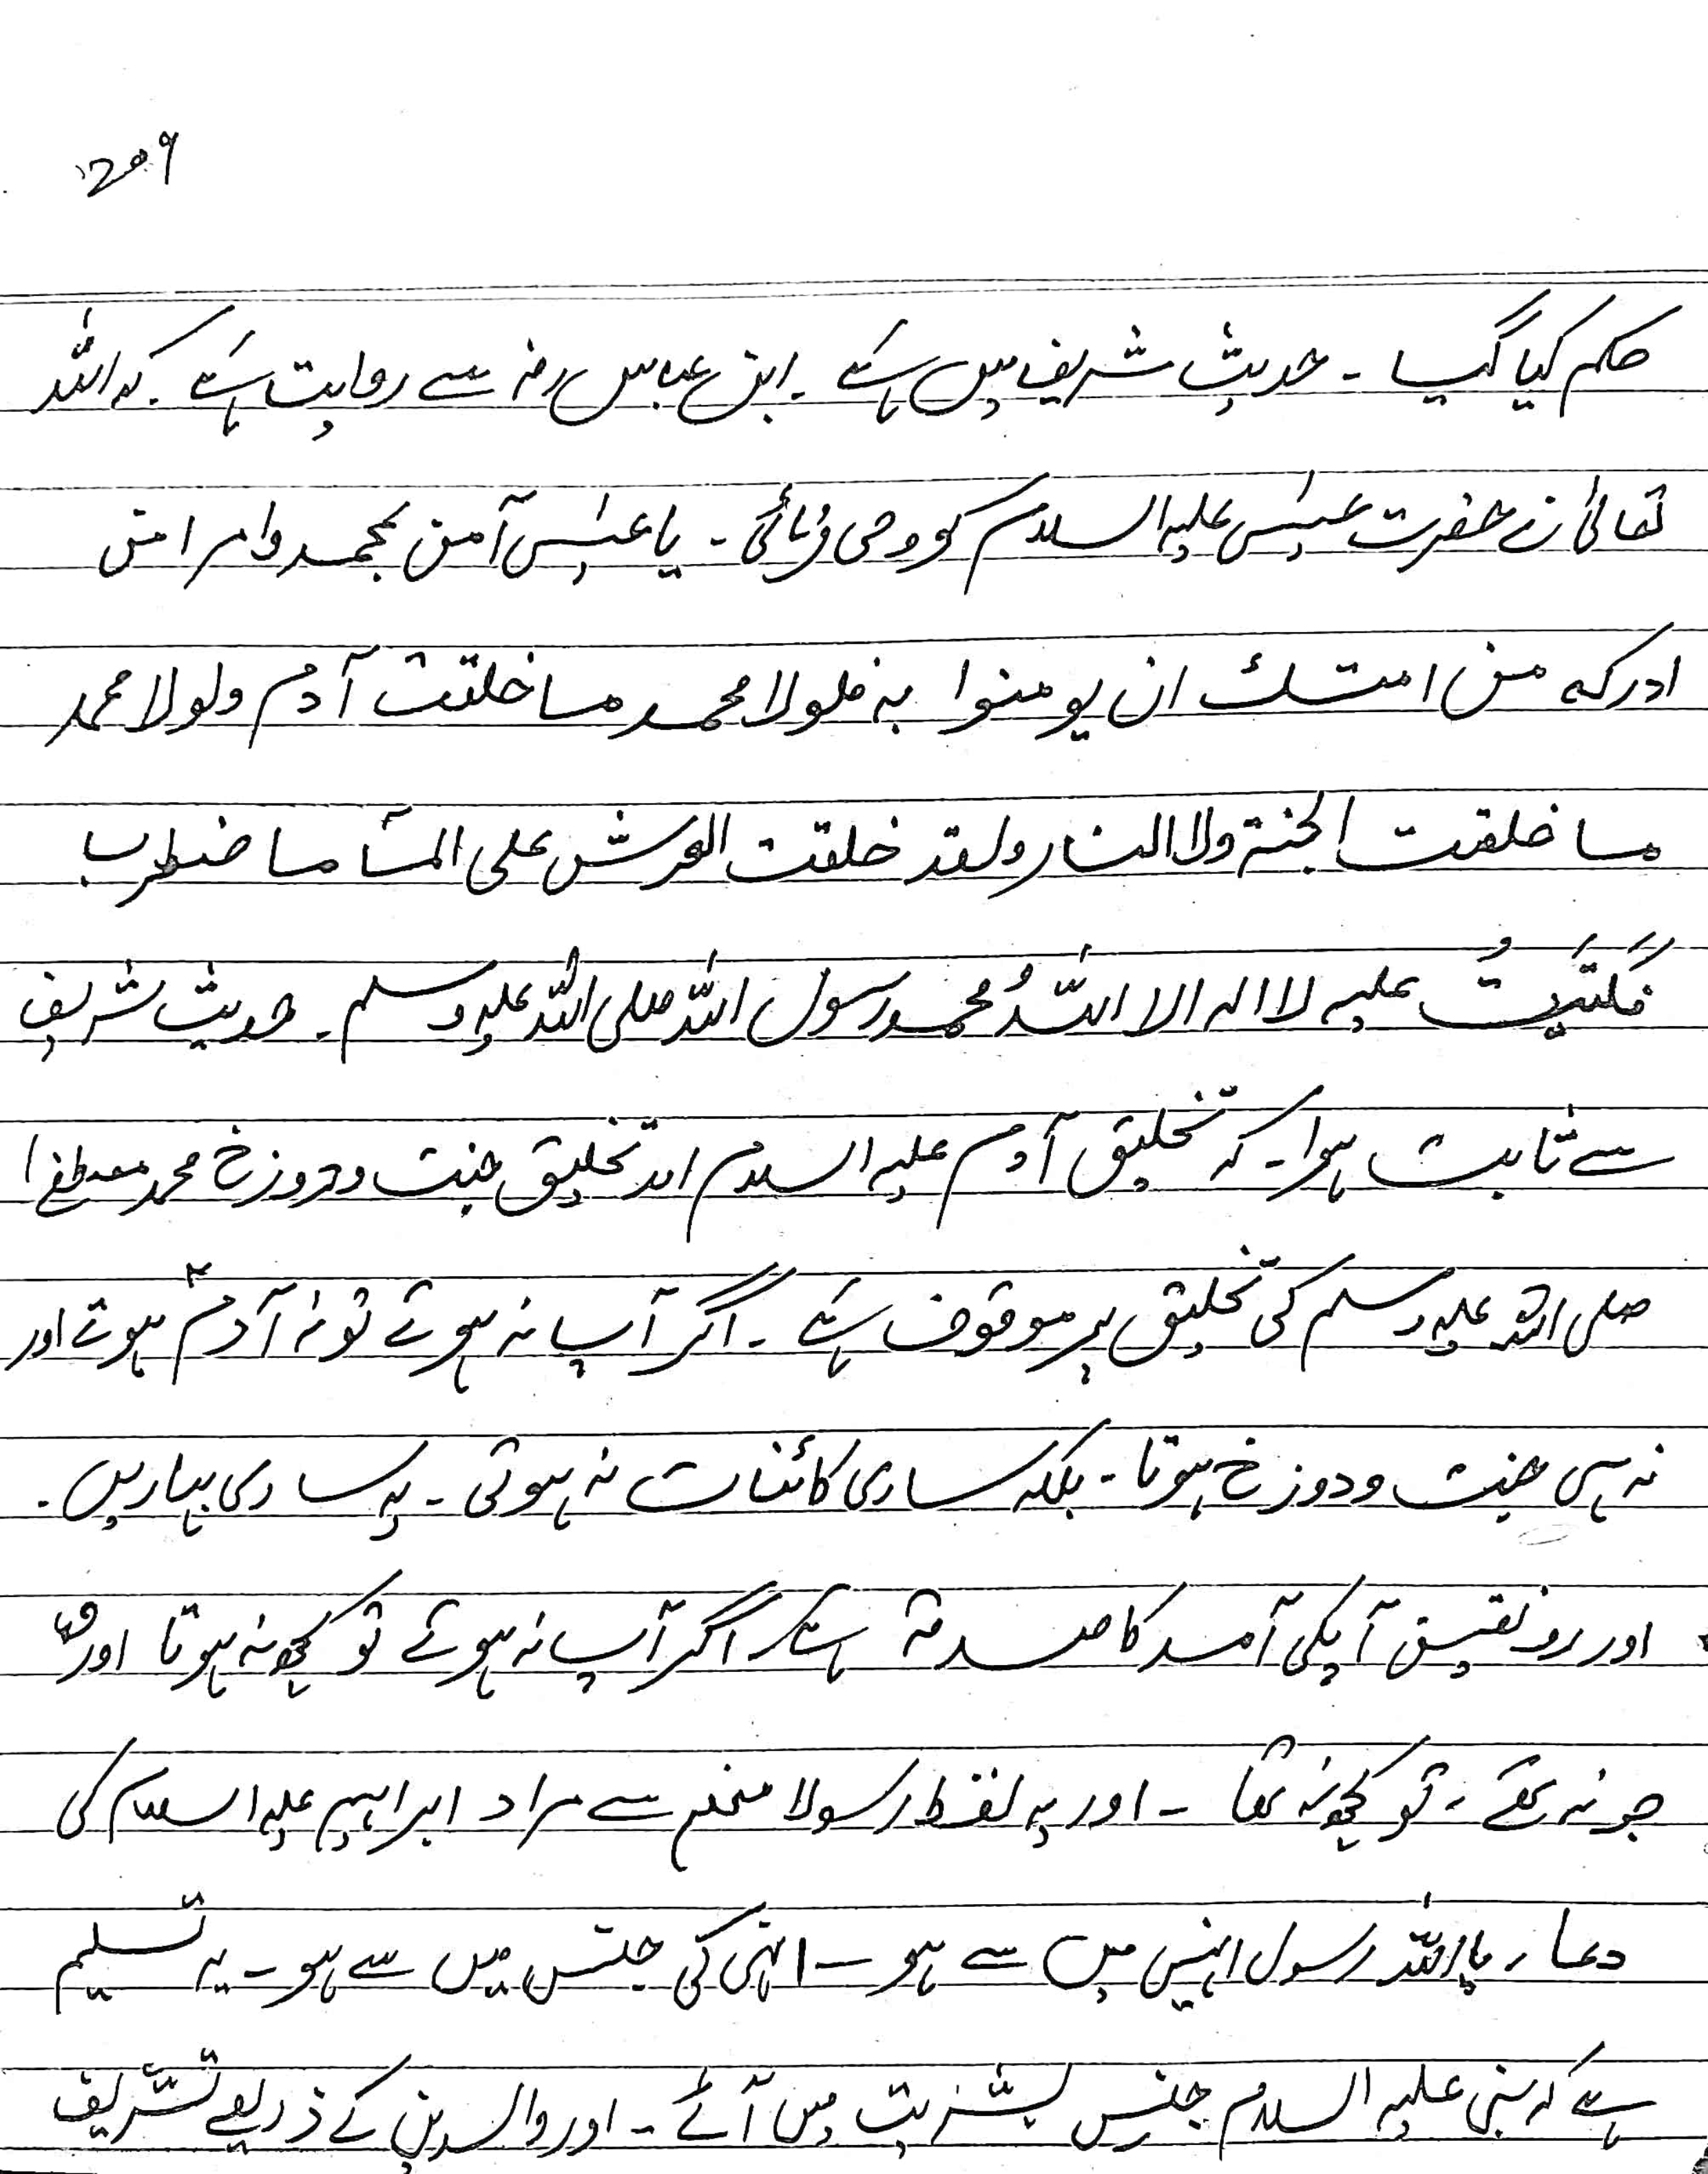 1209
حکم کیا گیا ۔ حدیث شریف میں ہے ۔ ابن عباس رض سے روایت ہے ۔ کہ اللہ
تعالیٰ نے حضرت عیسٰی علیہ السلام کو وحی فرمائی ۔ یا عیسٰی آمن بمحمد وامر امن
ادرکہ من امتک ان یومنوا بہ فلولا محمد ما خلقت آدم ولولا محمد
ما خلقت الجنۃ ولا النار ولقد خلقت العرش علی المآ ما ضطرب
فَکَتَبتُ علیہ لا الہ الا اللہُ محمد رسول اللہ صلی اللہ علیہ وسلم ۔ حدیث شریف
سے ثابت ہوا ۔ کہ تخلیق آدم علیہ السلام اور تخلیق جنت و دوزخ محمد مصطفٰے
صلی اللہ علیہ وسلم کی تخلیق پر موقوف ہے ۔ اگر آپ نہ ہوتے تو نہ آدمؑ ہوتے اور
نہ ہی جنت و دوزخ ہوتا ۔ بلکہ ساری کائنات نہ ہوتی ۔ یہ ساری بہاریں ۔
اور رونقیں آپکی آمد کا صدقہ ہے ۔ اگر آپ نہ ہوتے تو کچھ نہ ہوتا اور وہ
جو نہ تھے ، تو کچھ نہ تھا ۔ اور یہ لفظ رسولا منھم سے مراد ابراہیم علیہ السلام کی
دعا ، یا اللہ رسول انہیں میں سے ہو ۔ انہی کی جنس میں سے ہو ۔ یہ تسلیم
ہے کہ نبی علیہ السلام جنس بشریت میں آئے ۔ اور والدین کے ذریعے تشریف